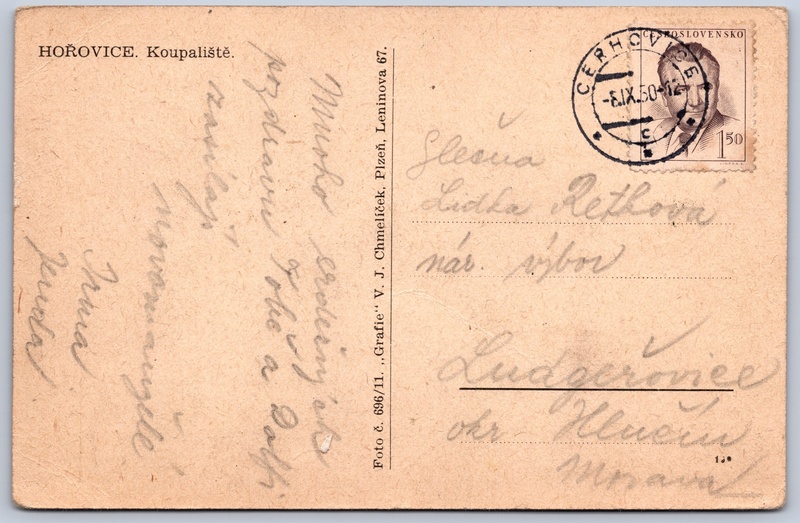 HOŘOVICE. Koupaliště.
Mnoho srdečných
pozdravu Tobě a Dolfi
zasílají
Novomanželé
Irma
Jenda
Foto č. 696/11. „Grafie" V. J. Chmelíček, Plzeň, Leninova 67.
ČESKOSLOVENSKO
1 50
CERHOVICE
-8.IX.50-12
c
Slečna
Lidka Rethová
nár. výbor
Ludgeřovice
okr. Hlučín
Morava